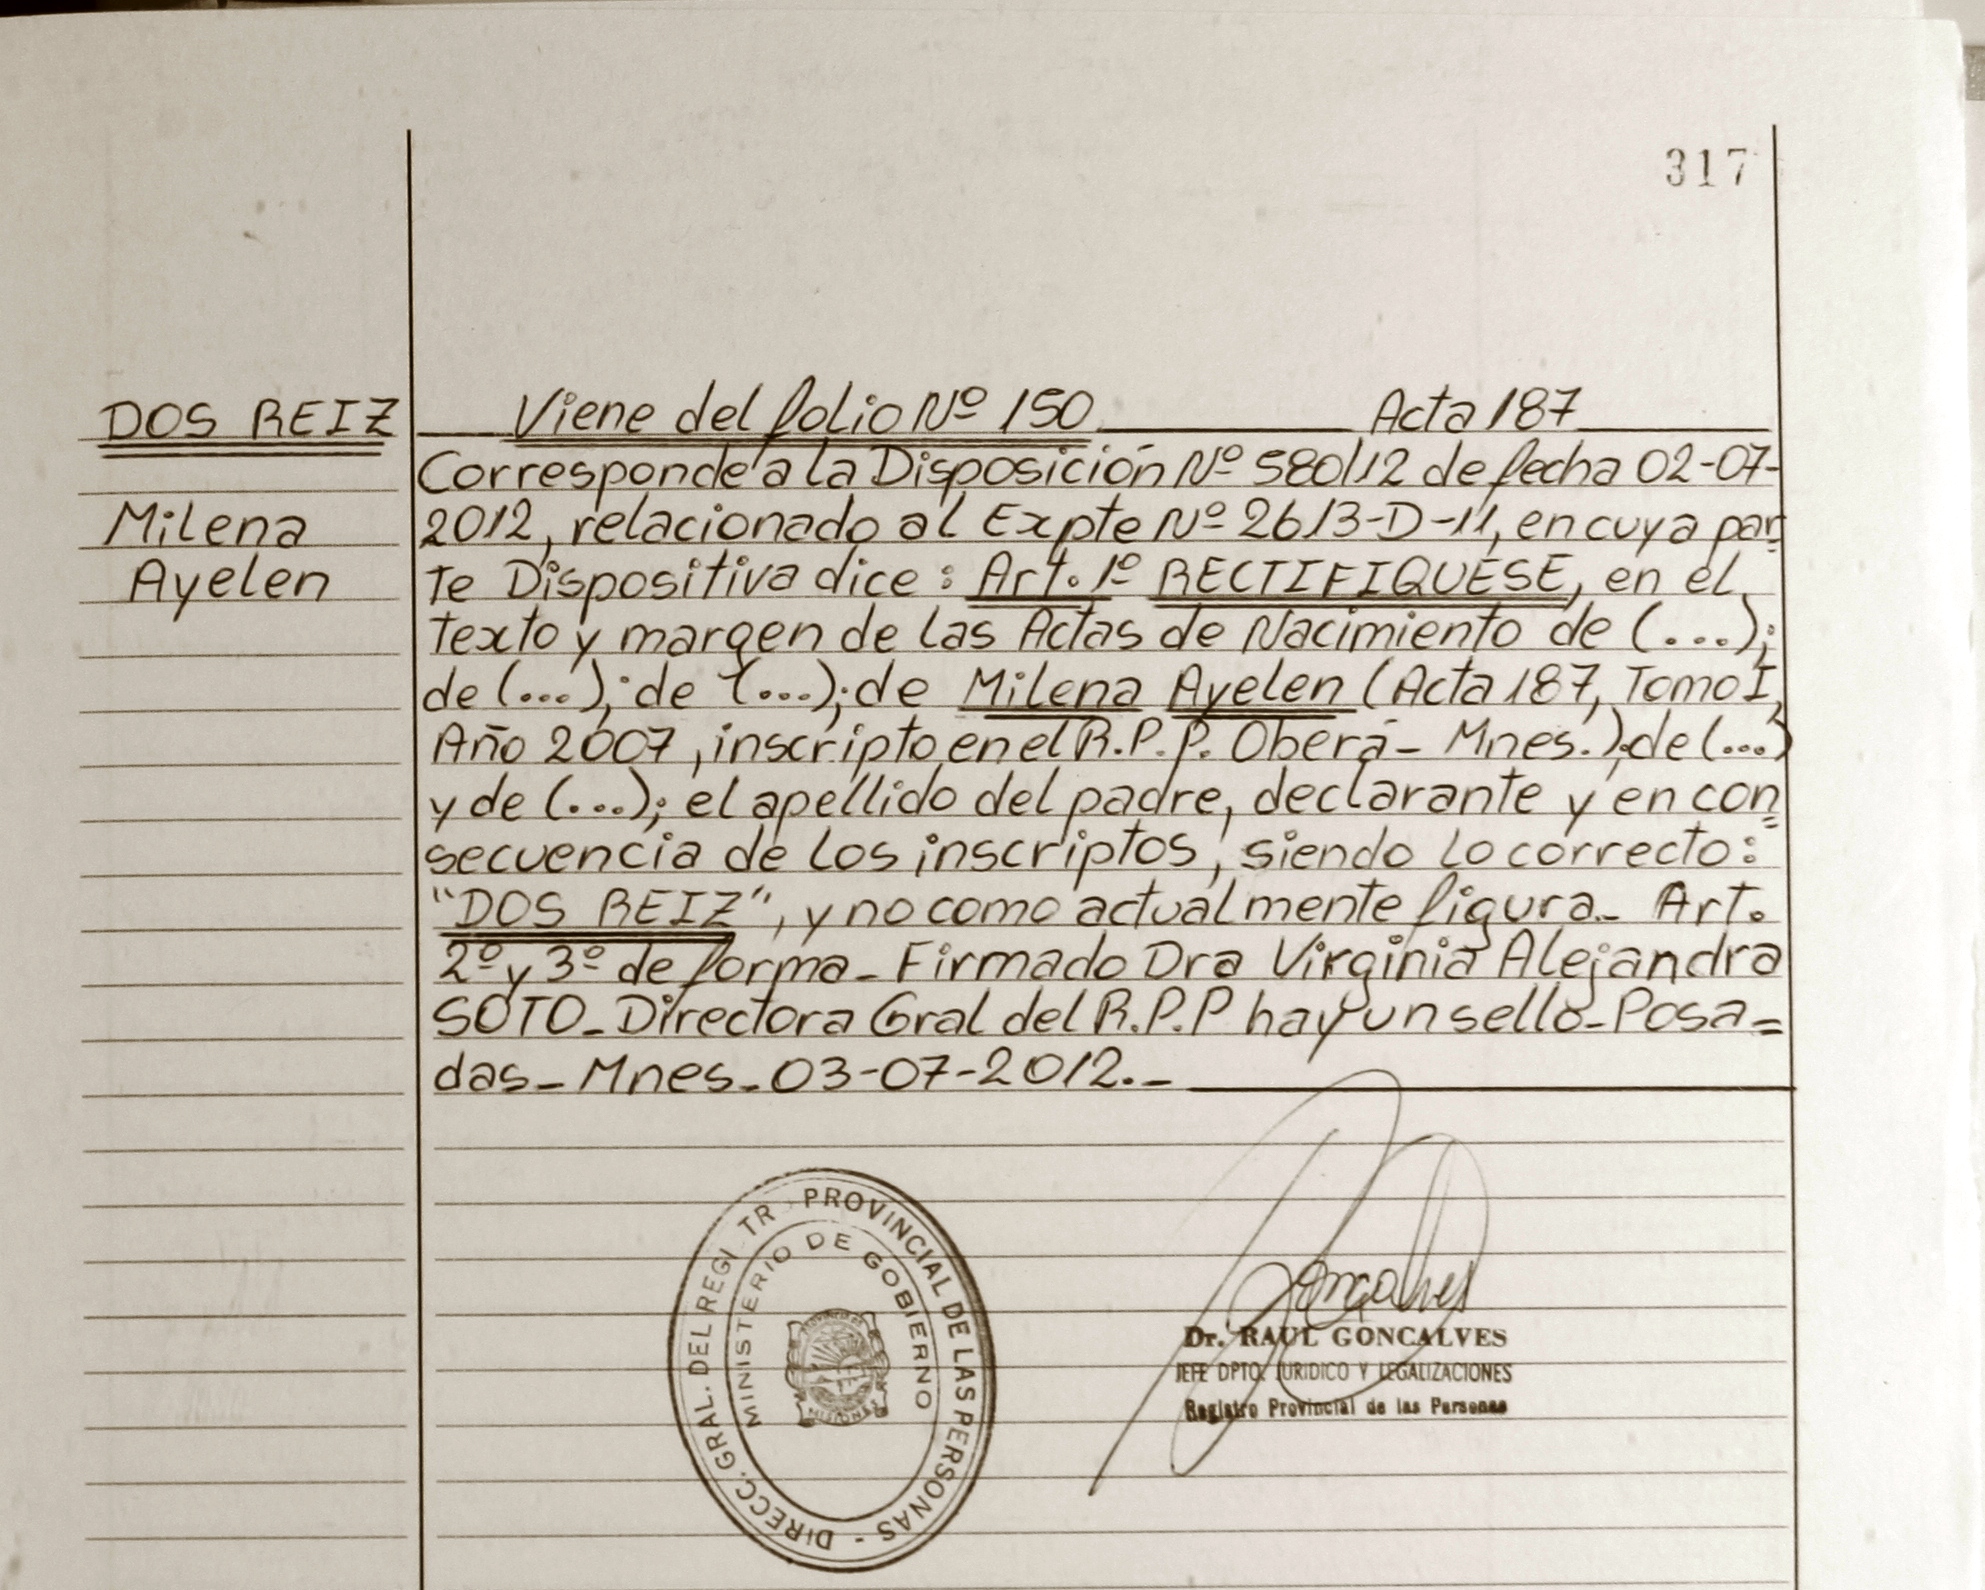 317
DOS REIZ
Milena
Ayelen
Viene del folio Nº 150 Acta 187
Corresponde a la Disposición Nº 580/12 de fecha 02-07-
2012, relacionado al Expte Nº 2613-D-11, en cuya par
te Dispositiva dice: Art. 1º RECTIFIQUESE, en el
texto y margen de las Actas de Nacimiento de (...);
de (...); de (...); de Milena Ayelen (Acta 187, Tomo I,
Año 2007, inscripto en el R.P.P. Oberá - Mnes.); de (...)
y de (...); el apellido del padre, declarante y en con=
secuencia de los inscriptos, siendo lo correcto:
"DOS REIZ", y no como actualmente figura_ Art.
2º y 3º de forma_ Firmado Dra Virginia Alejandra
SOTO_ Directora Gral del R.P.P hay un sello_ Posa=
das_ Mnes_ 03-07-2012._
DIRECC. GRAL. DEL REGI TR PROVINCIAL DE LAS PERSONAS -
MINISTERIO DE GOBIERNO
MISIONES
Goncalves
Dr. RAUL GONCALVES
JEFE DPTO. JURIDICO Y LEGALIZACIONES
Registro Provincial de las Personas